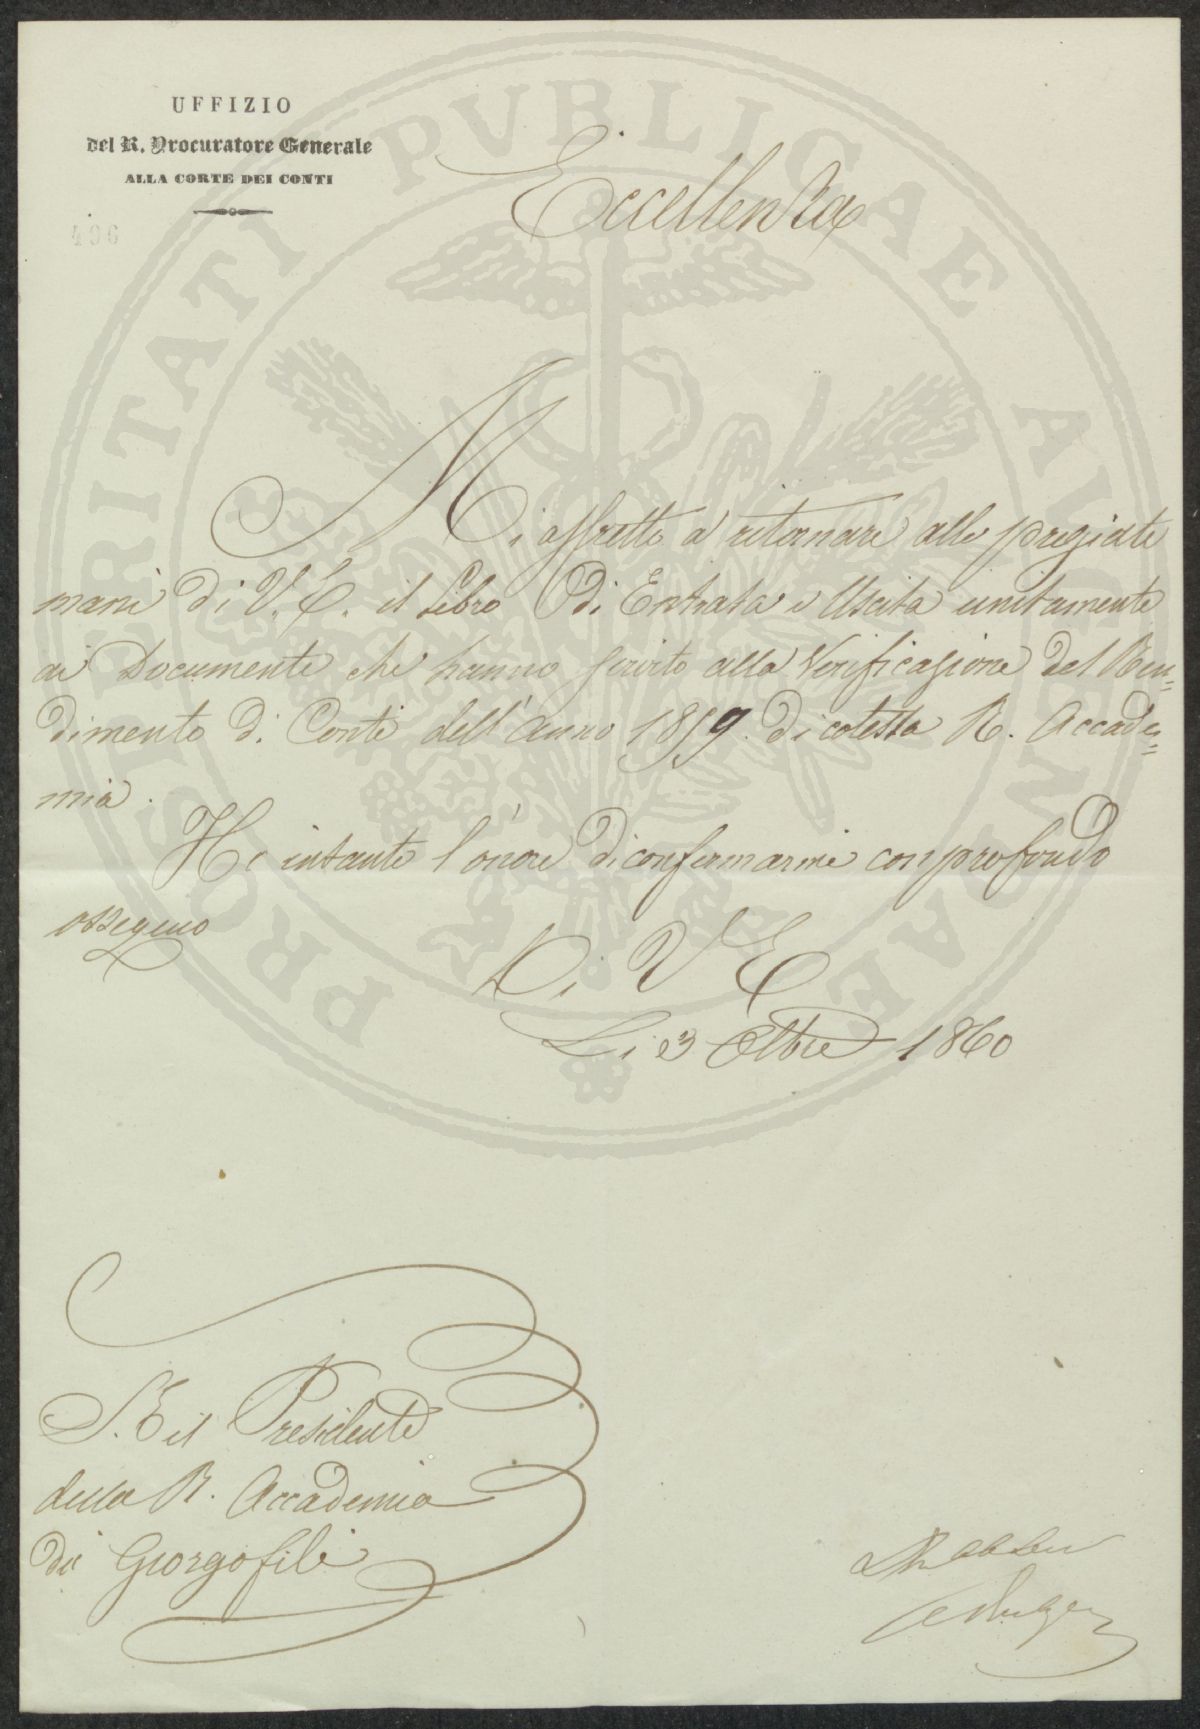 UFFIZIO
del R. Procuratore Generale
ALLA CORTE DEI CONTI
496
Eccellenza
Mi affretto a ritornare alle pregiate
mani di V. E. il Libro Di Entrata e Uscita unitamente
ai Documenti che hanno servito alla Verificazione del Ren=
dimento di Conti dell'anno 1859. di cotesta R. Accade=
mia.
Ho intanto l'onore di confermarmi con profondo
ossequio
Di V E
Li 3 Ottbre 1860
S. E il Presidente
della R. Accademia
dei Giorgofili
PROSPERITATI PVBLICAE AVGENDAE